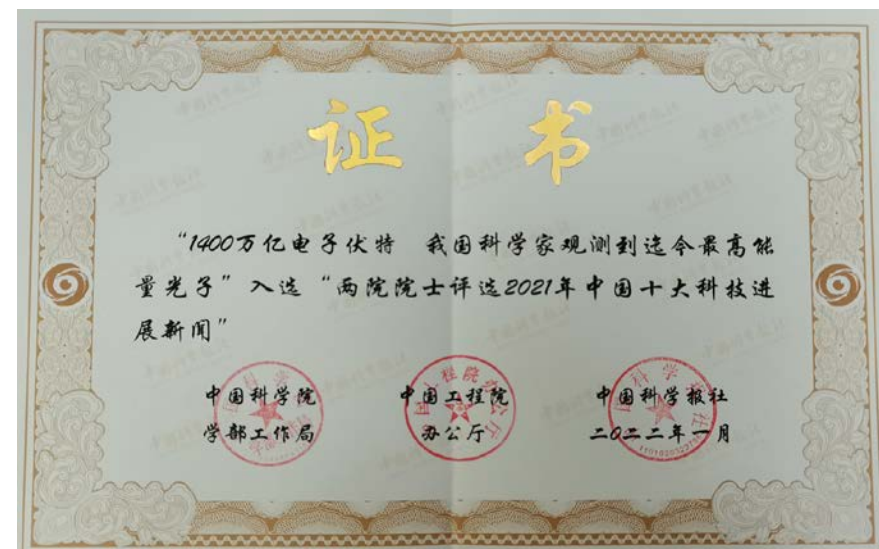 证 书
“1400万亿电子伏特 我国科学家观测到迄今最高能
量光子”入选“两院院士评选2021年中国十大科技进
展新闻”
中国科学院 中国工程院 中国科学报社
学部工作局 办公厅 二〇二二年一月